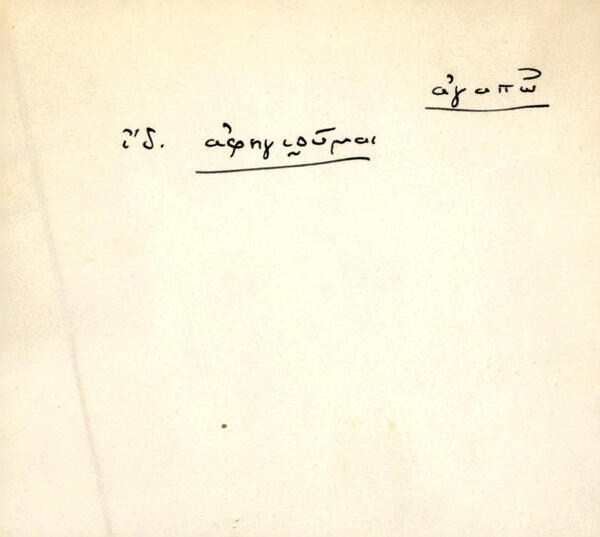 ἀγαπῶ
ἴδ. ἀφηγι̰οῦμαι